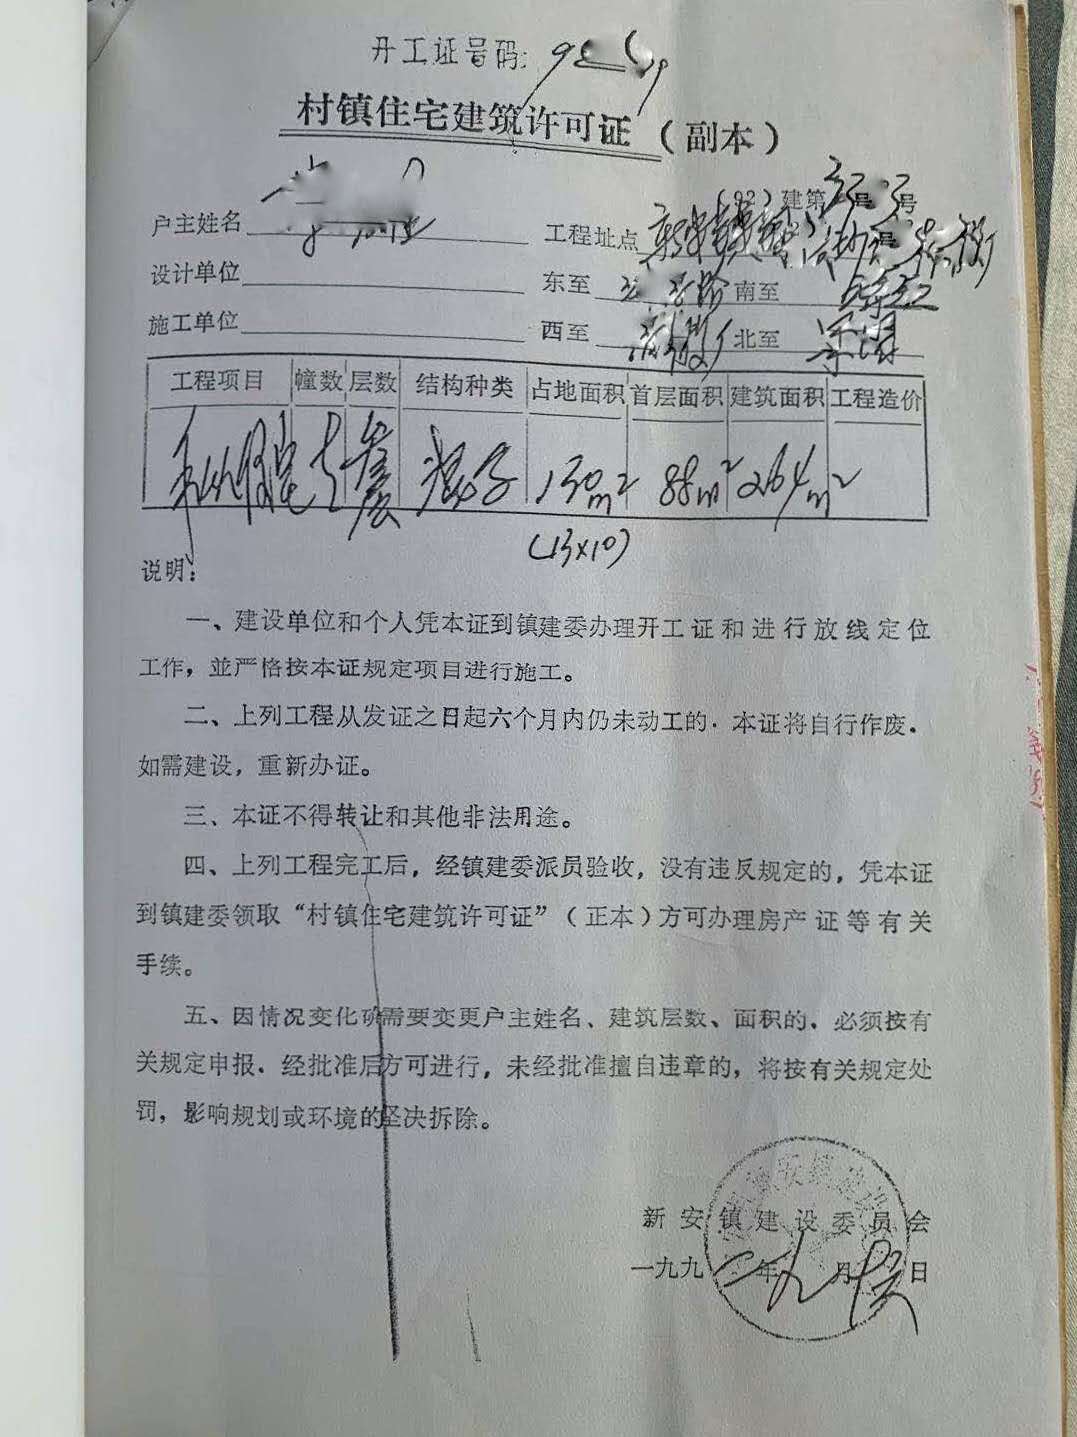 开工证号码:
村镇住宅建筑许可证（副本）
(92) 建第 号
户主姓名 工程址点
设计单位 东至 南至
施工单位 西至 北至
工程项目 幢数 层数 结构种类 占地面积 首层面积 建筑面积 工程造价
私人住宅 叁层 混合 130m² 88m² 264m²
(13×10)
说明:
一、建设单位和个人凭本证到镇建委办理开工证和进行放线定位
工作，並严格按本证规定项目进行施工。
二、上列工程从发证之日起六个月内仍未动工的．本证将自行作废．
如需建设，重新办证。
三、本证不得转让和其他非法用途。
四、上列工程完工后，经镇建委派员验收，没有违反规定的，凭本证
到镇建委领取“村镇住宅建筑许可证”（正本）方可办理房产证等有关
手续。
五、因情况变化 需要变更户主姓名、建筑层数、面积的．必须按有
关规定申报．经批准后方可进行，未经批准擅自违章的，将按有关规定处
罚，影响规划或环境的坚决拆除。
新安镇建设委员会
一九九二年九月 日